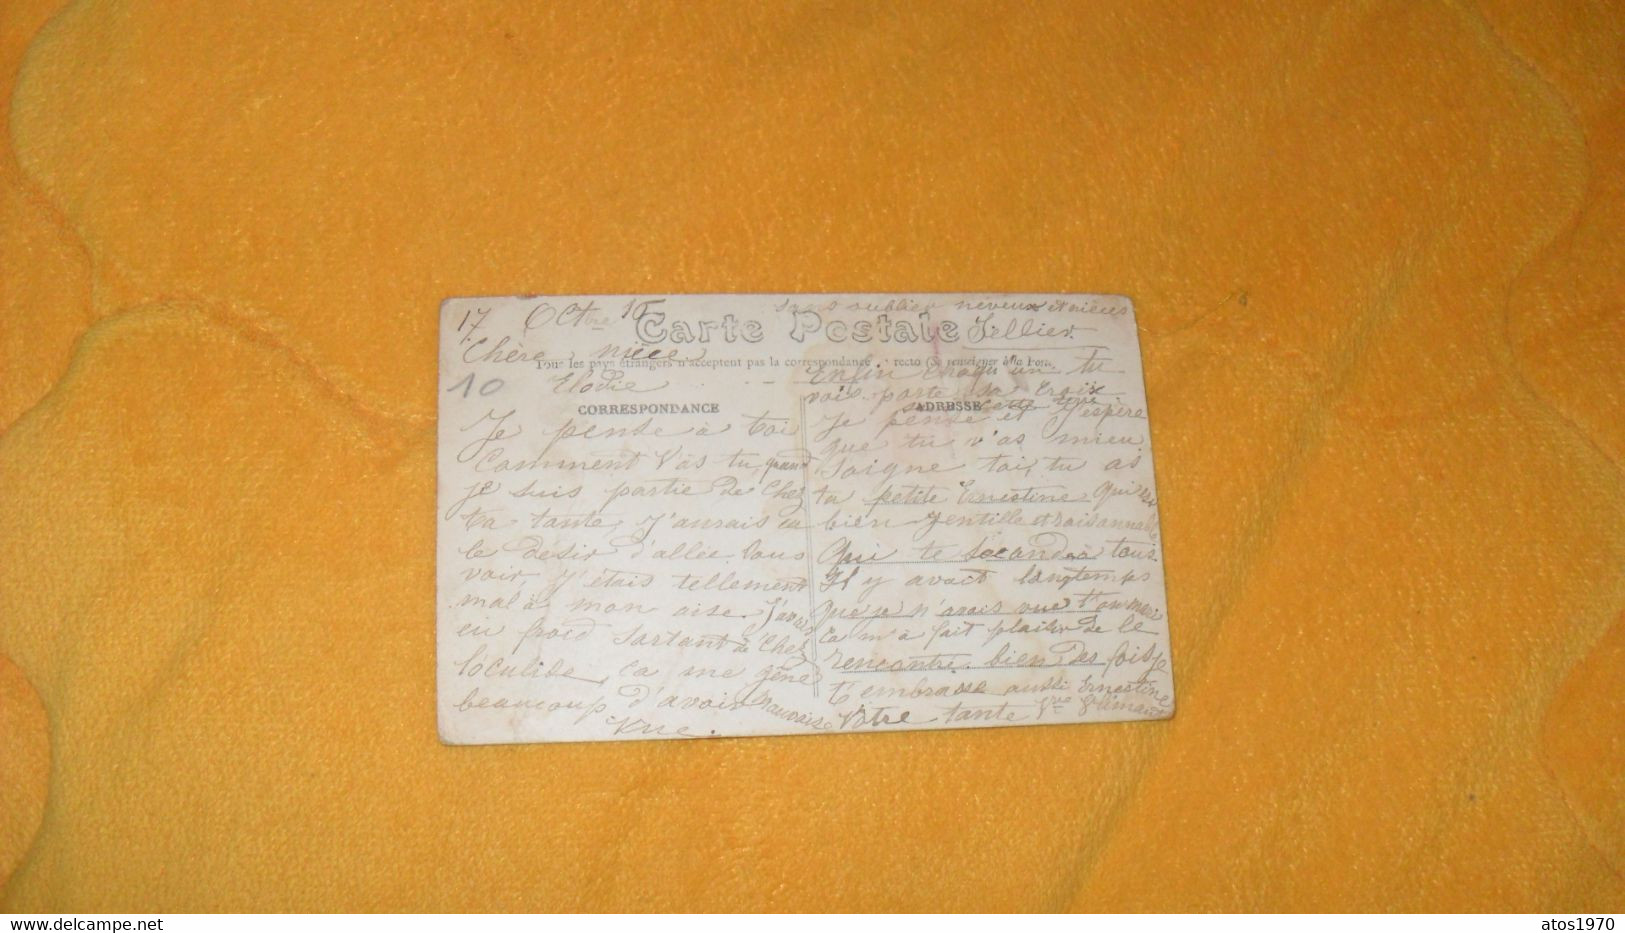 17 Octbre 15
sans oublier neveux et nièces
Tellier
Carte Postale
Tous les pays étrangers n'acceptent pas la correspondance au recto (Se renseigner à la Poste)
Chère nièce
Elodie
10
CORRESPONDANCE
Je pense à toi
Comment Vas tu, quand
je suis partie de Chez
ta tante, J'aurais eu
le désir d'allée Vous
voir, J'étais tellement
mal à mon aise. J'avais
eu froid Sortant de Chez
ça me gêne
beaucoup d'avoir mauvaise
Vue.
Enfin Chaqu'un tu
vois porte sa Croix
ADRESSE
Je pense et J'espère
que tu v'as mieu
Soigne toi, tu as
ta petite Ernestine Qui est
bien Jentille et raisonnable
Qui te Secondra tous
Il y avait longtemps
que je n'avais vue ton mari
Ca m'a fait plaisir de le
rencontré. bien des fois je
t'embrasse aussi Ernestine
Votre tante Vve
atos1970